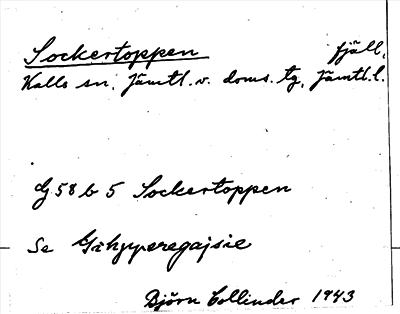 Sockertoppen fjäll,
Kalls sn. Jämtl. v. doms. tg, Jämtl. l.
G 58 b 5 Sockertoppen
Se
Björn Collinder 1943